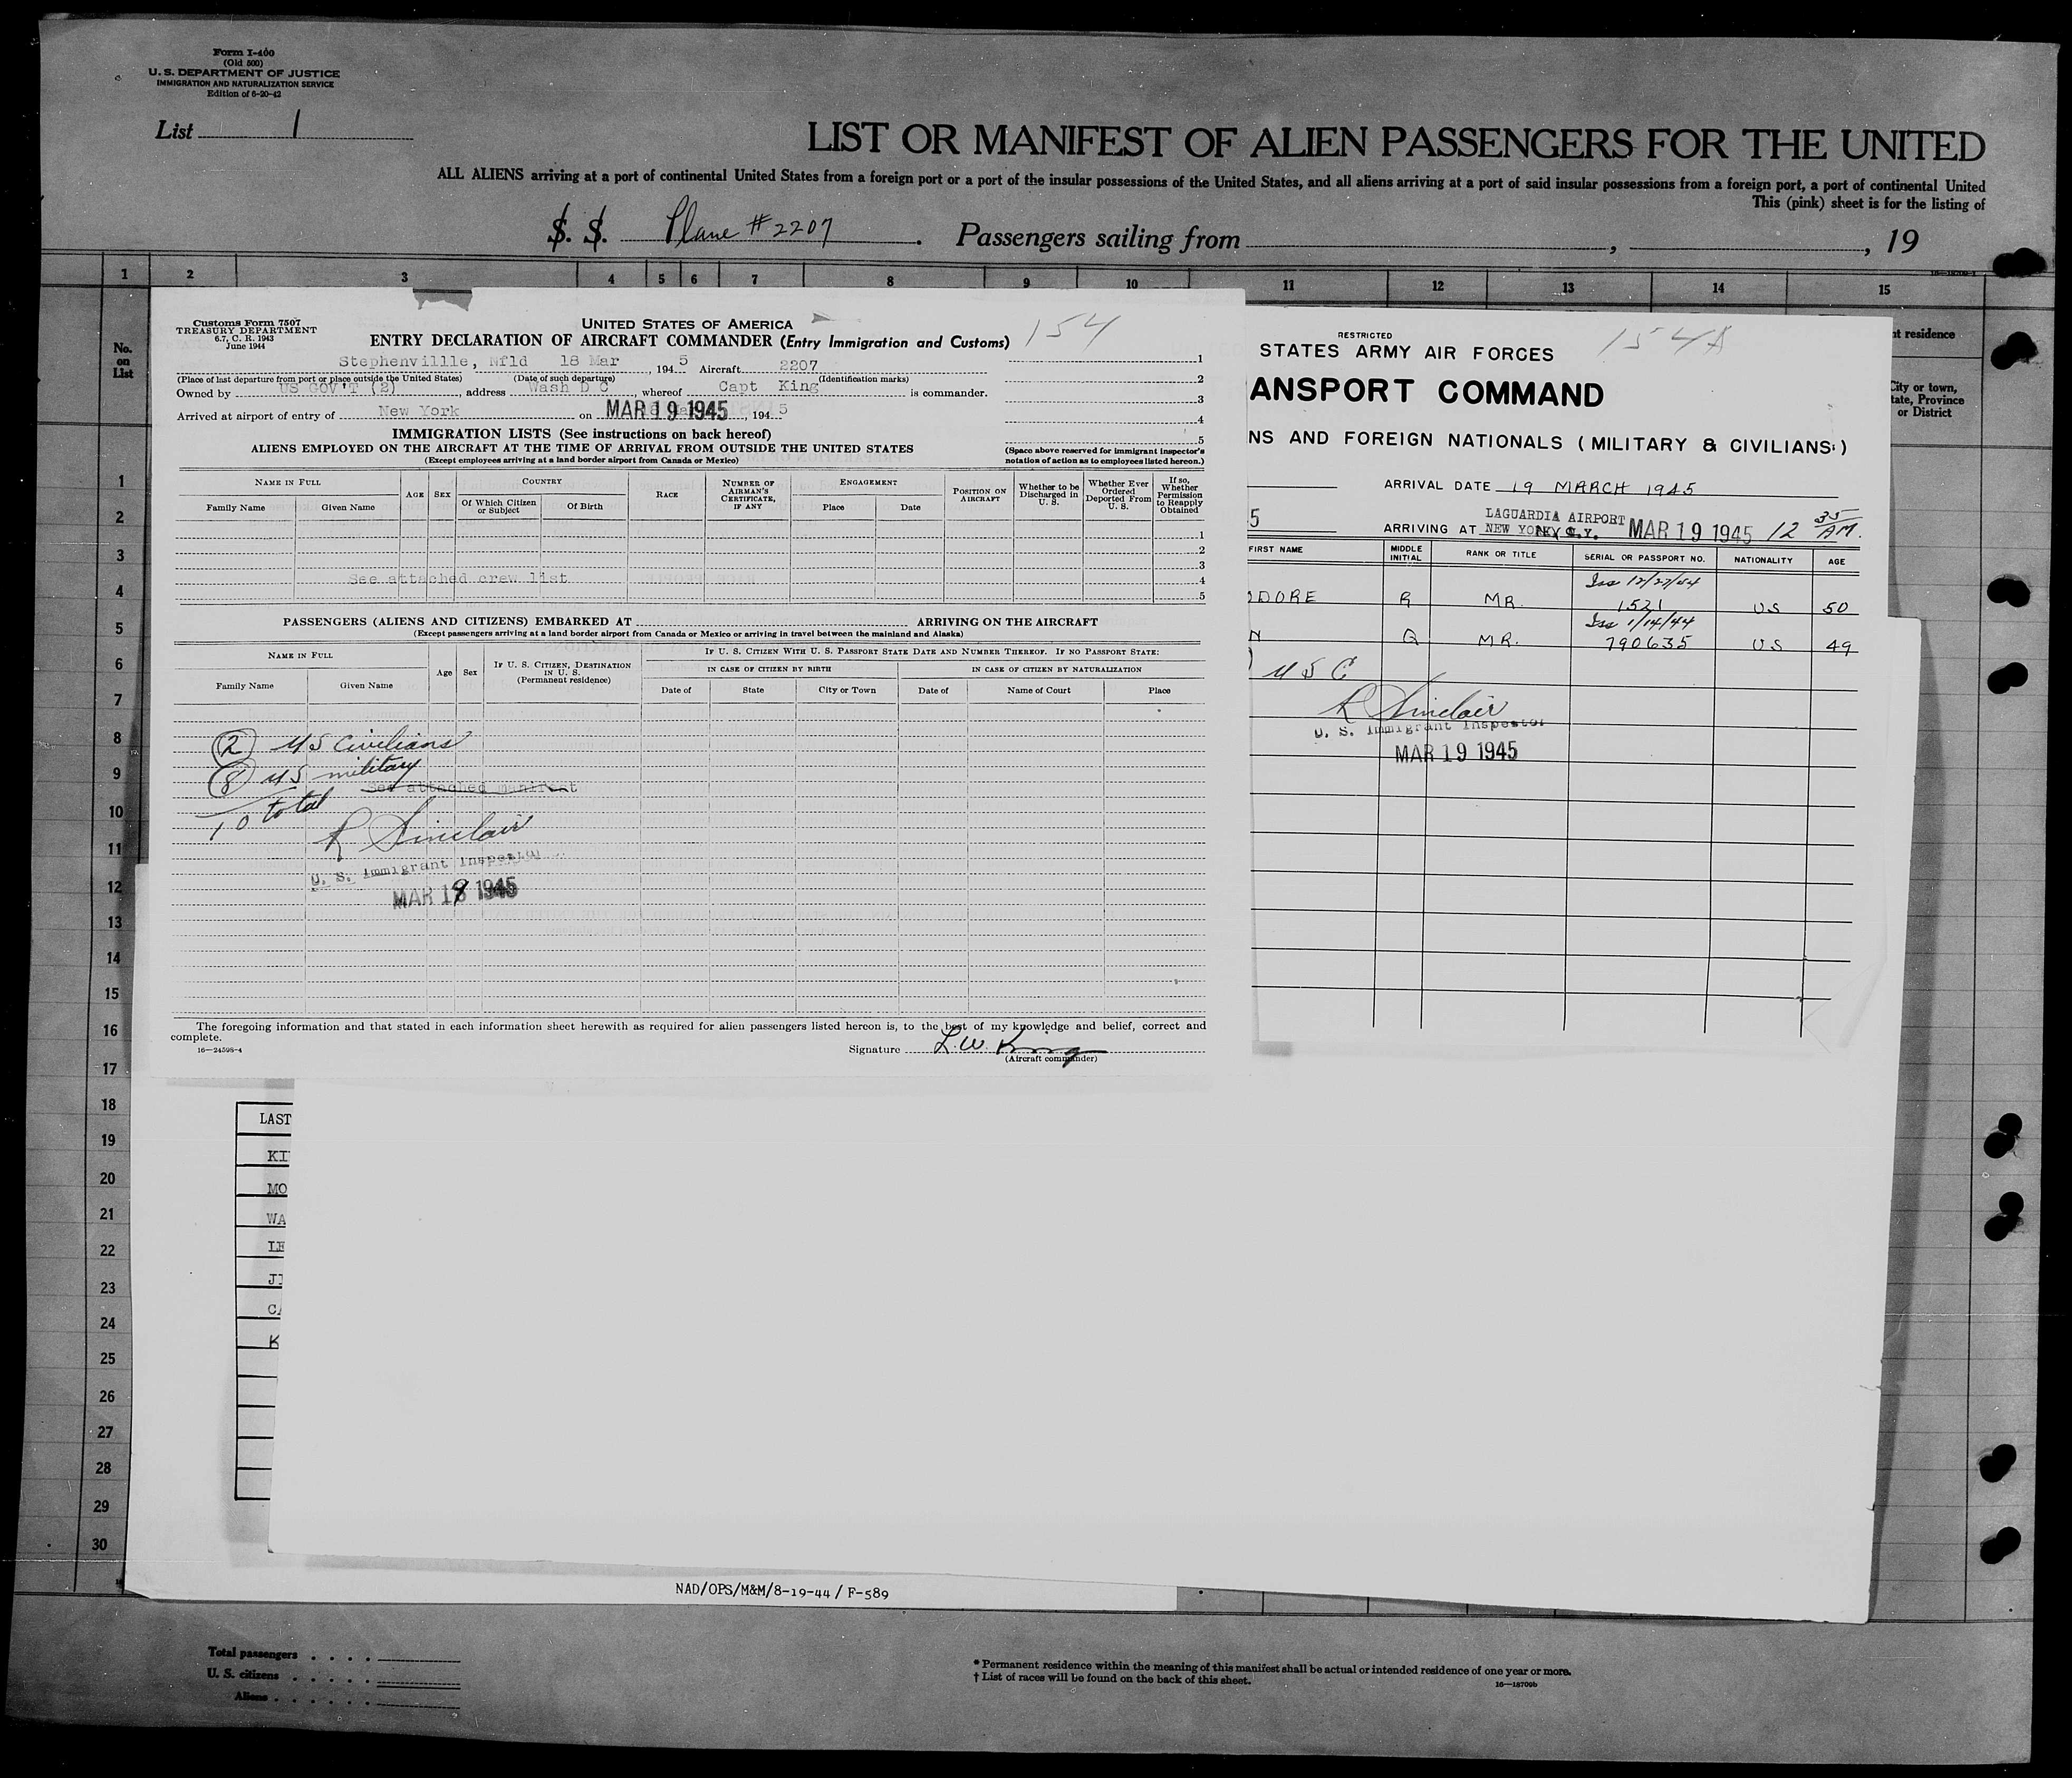 Form I-400
(Old 500)
U. S. DEPARTMENT OF JUSTICE
IMMIGRATION AND NATURALIZATION SERVICE
Edition of 6-20-42
List 1
LIST OR MANIFEST OF ALIEN PASSENGERS FOR THE UNITED
ALL ALIENS arriving at a port of continental United States from a foreign port or a port of the insular possessions of the United States, and all aliens arriving at a port of said insular possessions from a foreign port, a port of continental United
This (pink) sheet is for the listing of
S. S. Plane # 2207 . Passengers sailing from , , 19
1 2 3 4 5 6 7 8 9 10 11 12 13 14 15
No.
on
List
Customs Form 7507
TREASURY DEPARTMENT
6.7, C. R. 1943
June 1944
UNITED STATES OF AMERICA
ENTRY DECLARATION OF AIRCRAFT COMMANDER (Entry Immigration and Customs)
154
Stephenvillle, Nfld 18 Mar , 194 5 Aircraft 2207
(Place of last departure from port or place outside the United States) (Date of such departure) (Identification marks)
Owned by US GOV'T (2) , address Wash D C , whereof Capt King is commander.
Arrived at airport of entry of New York on MAR 19 1945 , 194 5
1
2
3
4
5
IMMIGRATION LISTS (See instructions on back hereof)
ALIENS EMPLOYED ON THE AIRCRAFT AT THE TIME OF ARRIVAL FROM OUTSIDE THE UNITED STATES
(Except employees arriving at a land border airport from Canada or Mexico)
(Space above reserved for immigrant inspector's
notation of action as to employees listed hereon.)
NAME IN FULL
Family Name Given Name
AGE SEX
COUNTRY
Of Which Citizen or Subject Of Birth
RACE
NUMBER OF AIRMAN'S CERTIFICATE, IF ANY
ENGAGEMENT
Place Date
POSITION ON AIRCRAFT
Whether to be Discharged in U. S.
Whether Ever Ordered Deported From U. S.
If so, Whether Permission to Reapply Obtained
1
2
3
See attached crew list 4
5
PASSENGERS (ALIENS AND CITIZENS) EMBARKED AT ARRIVING ON THE AIRCRAFT
(Except passengers arriving at a land border airport from Canada or Mexico or arriving in travel between the mainland and Alaska)
NAME IN FULL
Family Name Given Name
Age Sex
IF U. S. CITIZEN, DESTINATION IN U. S.
(Permanent residence)
IF U. S. CITIZEN WITH U. S. PASSPORT STATE DATE AND NUMBER THEREOF. IF NO PASSPORT STATE:
IN CASE OF CITIZEN BY BIRTH IN CASE OF CITIZEN BY NATURALIZATION
Date of State City or Town Date of Name of Court Place
(2) US Civilians
(8) US military
See attached manifest
10 total
R Sinclair
U. S. Immigrant Inspector
MAR 19 1945
The foregoing information and that stated in each information sheet herewith as required for alien passengers listed hereon is, to the best of my knowledge and belief, correct and
complete.
16—24598-4
Signature L. W. King
(Aircraft commander)
RESTRICTED
154A
STATES ARMY AIR FORCES
ANSPORT COMMAND
NS AND FOREIGN NATIONALS (MILITARY & CIVILIANS:)
ARRIVAL DATE 19 MARCH 1945
5
LAGUARDIA AIRPORT
ARRIVING AT NEW YORK MAR 19 1945 12 35 AM.
FIRST NAME MIDDLE INITIAL RANK OR TITLE SERIAL OR PASSPORT NO. NATIONALITY AGE
Iss 12/27/44
DORE R MR. 1521 US 50
Iss 1/14/44
N Q MR. 790635 US 49
) U S C
R Sinclair
U. S. Immigrant Inspector
MAR 19 1945
nt residence
City or town,
tate, Province
or District
1
2
3
4
5
6
7
8
9
10
11
12
13
14
15
16
17
18
19
20
21
22
23
24
25
26
27
28
29
30
LAST
KI
MO
WA
LE
JI
CA
K
NAD/OPS/M&M/8-19-44 / F-589
Total passengers . . . .
U. S. citizens . . . . .
Aliens . . . . . .
* Permanent residence within the meaning of this manifest shall be actual or intended residence of one year or more.
† List of races will be found on the back of this sheet.
16—18709b